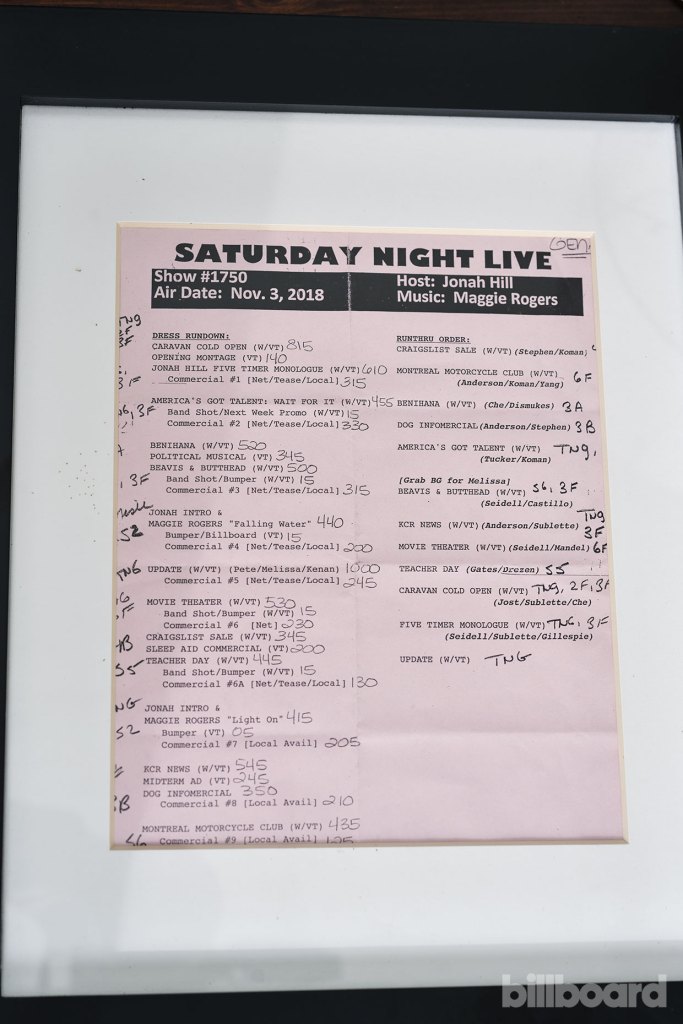 GEN
SATURDAY NIGHT LIVE
Show #1750
Air Date: Nov. 3, 2018
Host: Jonah Hill
Music: Maggie Rogers
DRESS RUNDOWN:
CARAVAN COLD OPEN (W/VT) 815
OPENING MONTAGE (VT) 140
JONAH HILL FIVE TIMER MONOLOGUE (W/VT) 610
Commercial #1 [Net/Tease/Local] 315
AMERICA'S GOT TALENT: WAIT FOR IT (W/VT) 455
Band Shot/Next Week Promo (W/VT) 15
Commercial #2 [Net/Tease/Local] 330
BENIHANA (W/VT) 520
POLITICAL MUSICAL (VT) 345
BEAVIS & BUTTHEAD (W/VT) 500
Band Shot/Bumper (W/VT) 15
Commercial #3 [Net/Tease/Local] 315
JONAH INTRO &
MAGGIE ROGERS "Falling Water" 440
Bumper/Billboard (VT) 15
Commercial #4 [Net/Tease/Local] 200
UPDATE (W/VT) (Pete/Melissa/Kenan) 1000
Commercial #5 [Net/Tease/Local] 245
MOVIE THEATER (W/VT) 530
Band Shot/Bumper (W/VT) 15
Commercial #6 [Net] 230
CRAIGSLIST SALE (W/VT) 345
SLEEP AID COMMERCIAL (VT) 200
TEACHER DAY (W/VT) 445
Band Shot/Bumper (W/VT) 15
Commercial #6A [Net/Tease/Local] 130
JONAH INTRO &
MAGGIE ROGERS "Light On" 415
Bumper (VT) 05
Commercial #7 [Local Avail] 205
KCR NEWS (W/VT) 545
MIDTERM AD (VT) 245
DOG INFOMERCIAL 350
Commercial #8 [Local Avail] 210
MONTREAL MOTORCYCLE CLUB (W/VT) 435
Commercial #9 [Local Avail]
RUNTHRU ORDER:
CRAIGSLIST SALE (W/VT) (Stephen/Koman)
MONTREAL MOTORCYCLE CLUB (W/VT)
(Anderson/Koman/Yang) 6F
BENIHANA (W/VT) (Che/Dismukes) 3A
DOG INFOMERCIAL (Anderson/Stephen) 3B
AMERICA'S GOT TALENT (W/VT) TNG,
(Tucker/Koman)
[Grab BG for Melissa]
BEAVIS & BUTTHEAD (W/VT) S6, 3F
(Seidell/Castillo)
KCR NEWS (W/VT) (Anderson/Sublette) TNG
3F
MOVIE THEATER (W/VT) (Seidell/Mandel) 6F
TEACHER DAY (Gates/Drezen) S5
CARAVAN COLD OPEN (W/VT) TNG, 2F, 3F
(Jost/Sublette/Che)
FIVE TIMER MONOLOGUE (W/VT) TNG, 3F
(Seidell/Sublette/Gillespie)
UPDATE (W/VT) TNG
billboard